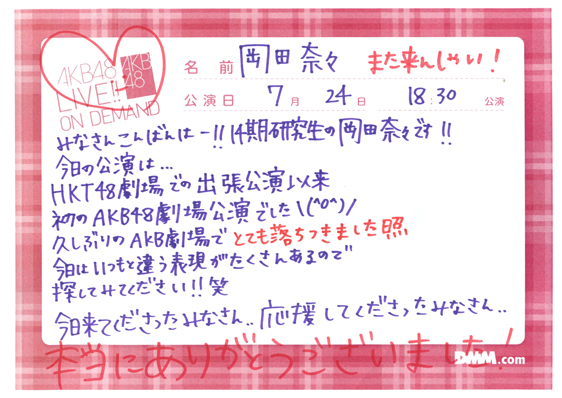 AKB48
LIVE!!
ON DEMAND
AKB
48
名 前 岡田奈々 また来んしゃい!
公演日 7月 24日 18:30 公演
みなさんこんばんはー!! 14期研究生の岡田奈々です!!
今日の公演は…
HKT48劇場での出張公演以来
初のAKB48劇場公演でした\(^o^)/
久しぶりのAKB劇場でとても落ちつきました照
今日はいつもと違う表現がたくさんあるので
探してみてください!!笑
今日来てくださったみなさん..応援してくださったみなさん..
本当にありがとうございました!
DMM.com